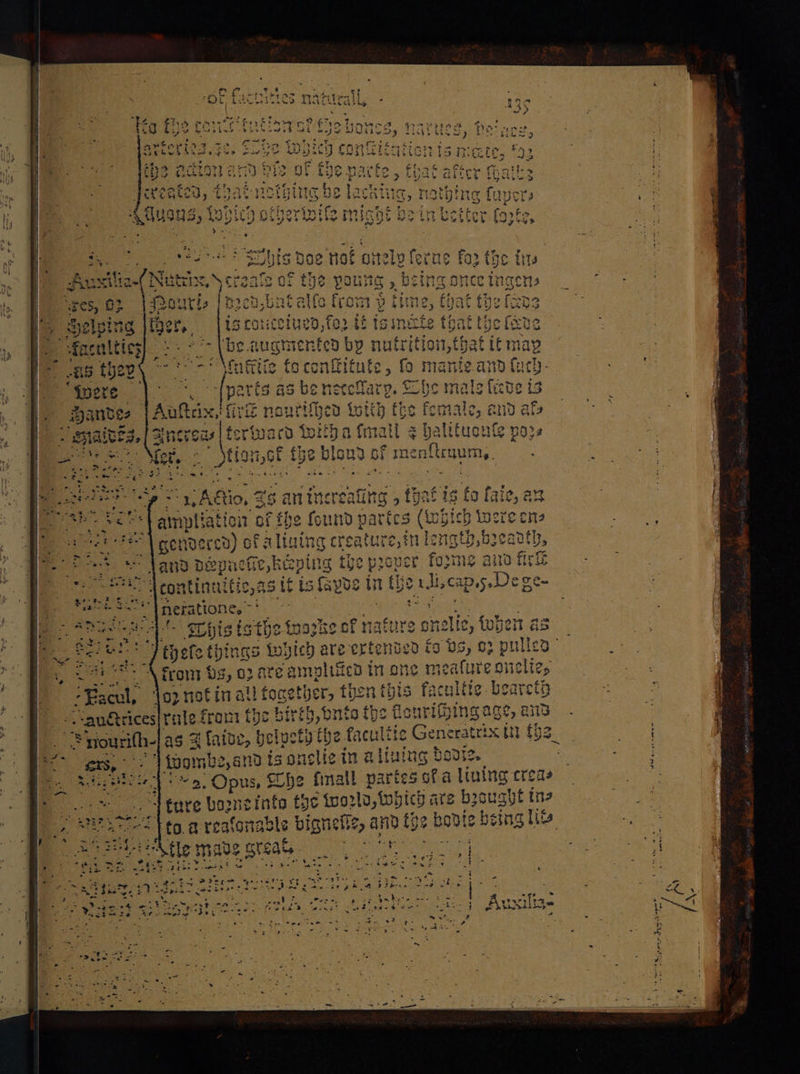 of faculties naturall, 135
to the constitution of the bones, narues, veines,
arteries, &c. The which constitution is meete, for
the action and vse of the parte, that after shalbe
created, that nothing be lacking, nothing super-
fluous, which otherwise might be in better sorte.
This doe not onely serue for the in-
Auxilia- Nutrix, crease of the young, being once ingen-
res, or Nouris dred, but also from ẏ time, that the seede
Helping sher, is conceiued, for it is meete that the seede
faculties be augmented by nutrition, that it may
as they suffise to constitute, so manie and such
were partes as be necessary. The male seede is
Handes Auctrix, first nourished with the female, and af-
Maides, Increas terward with a small & halituouse por-
ser. tion, of the bloud of menstruum,
1, Actio, Is an increasing, that is to saie, an
ampliation of the sound partes (which were en-
gendered) of a liuing creature, in length, breadth,
and deepnesse, keeping the proper forme and first
continuitie, as it is sayde in the 1. li, cap. 5. De ge-
neratione,
This is the worke of nature onelie, when as
these things which are extended to vs, or pulled
from vs, or are amplified in one measure onelie,
Facul, or not in all together, then this facultie beareth
auctrices rule from the birth, vnto the flourishing age, and
nourish- as I saide, helpeth the facultie Generatrix in the
ers, wombe, and is onelie in a liuing bodie.
2. Opus, The small partes of a liuing crea-
ture borne into the world, which are brought in-
to a reasonable bignesse, and the bodie being lit-
tle made great,
Auxilia-